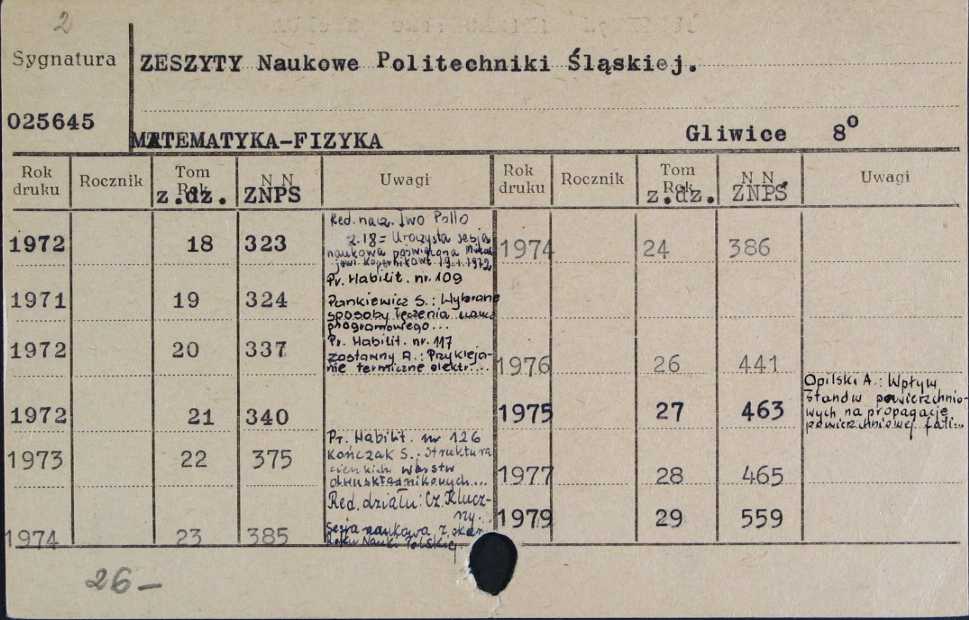 2
Sygnatura
ZESZYTY Naukowe Politechniki Śląskiej.
025645
MATEMATYKA-FIZYKA
Gliwice 8°
Rok druku Rocznik Tom Rok z.dz. N N ZNPS Uwagi
1972 18 323 Red. nacz. Iwo Pollo
z.18 = Uroczysta sesja
naukowa poświęcona Mikoła
jowi Kopernikowi 19.I.1972
1971 19 324 Pr. Habilit. nr. 109
Pankiewicz S.: Wybrane
sposoby łączenia
programowego...
1972 20 337 Pr. Habilit. nr. 117
Zostawny A.: Przykleja-
nie termiczne elektr....
1972 21 340
1973 22 375 Pr. Habilit. nr 126
Kończak S.: Struktura
cienkich warstw
dwuskładnikowych...
1974 23 385 Red. działu: Cz. Klucz-
ny.
Sesja naukowa z okaz.
Roku Nauki Polskiej
Rok druku Rocznik Tom Rok z.dz. N N ZNPS Uwagi
1974 24 386
1976 26 441
1975 27 463 Opilski A.: Wpływ
stanów powierzchnio-
wych na propagację
powierzchniowej fali...
1977 28 465
1979 29 559
26-